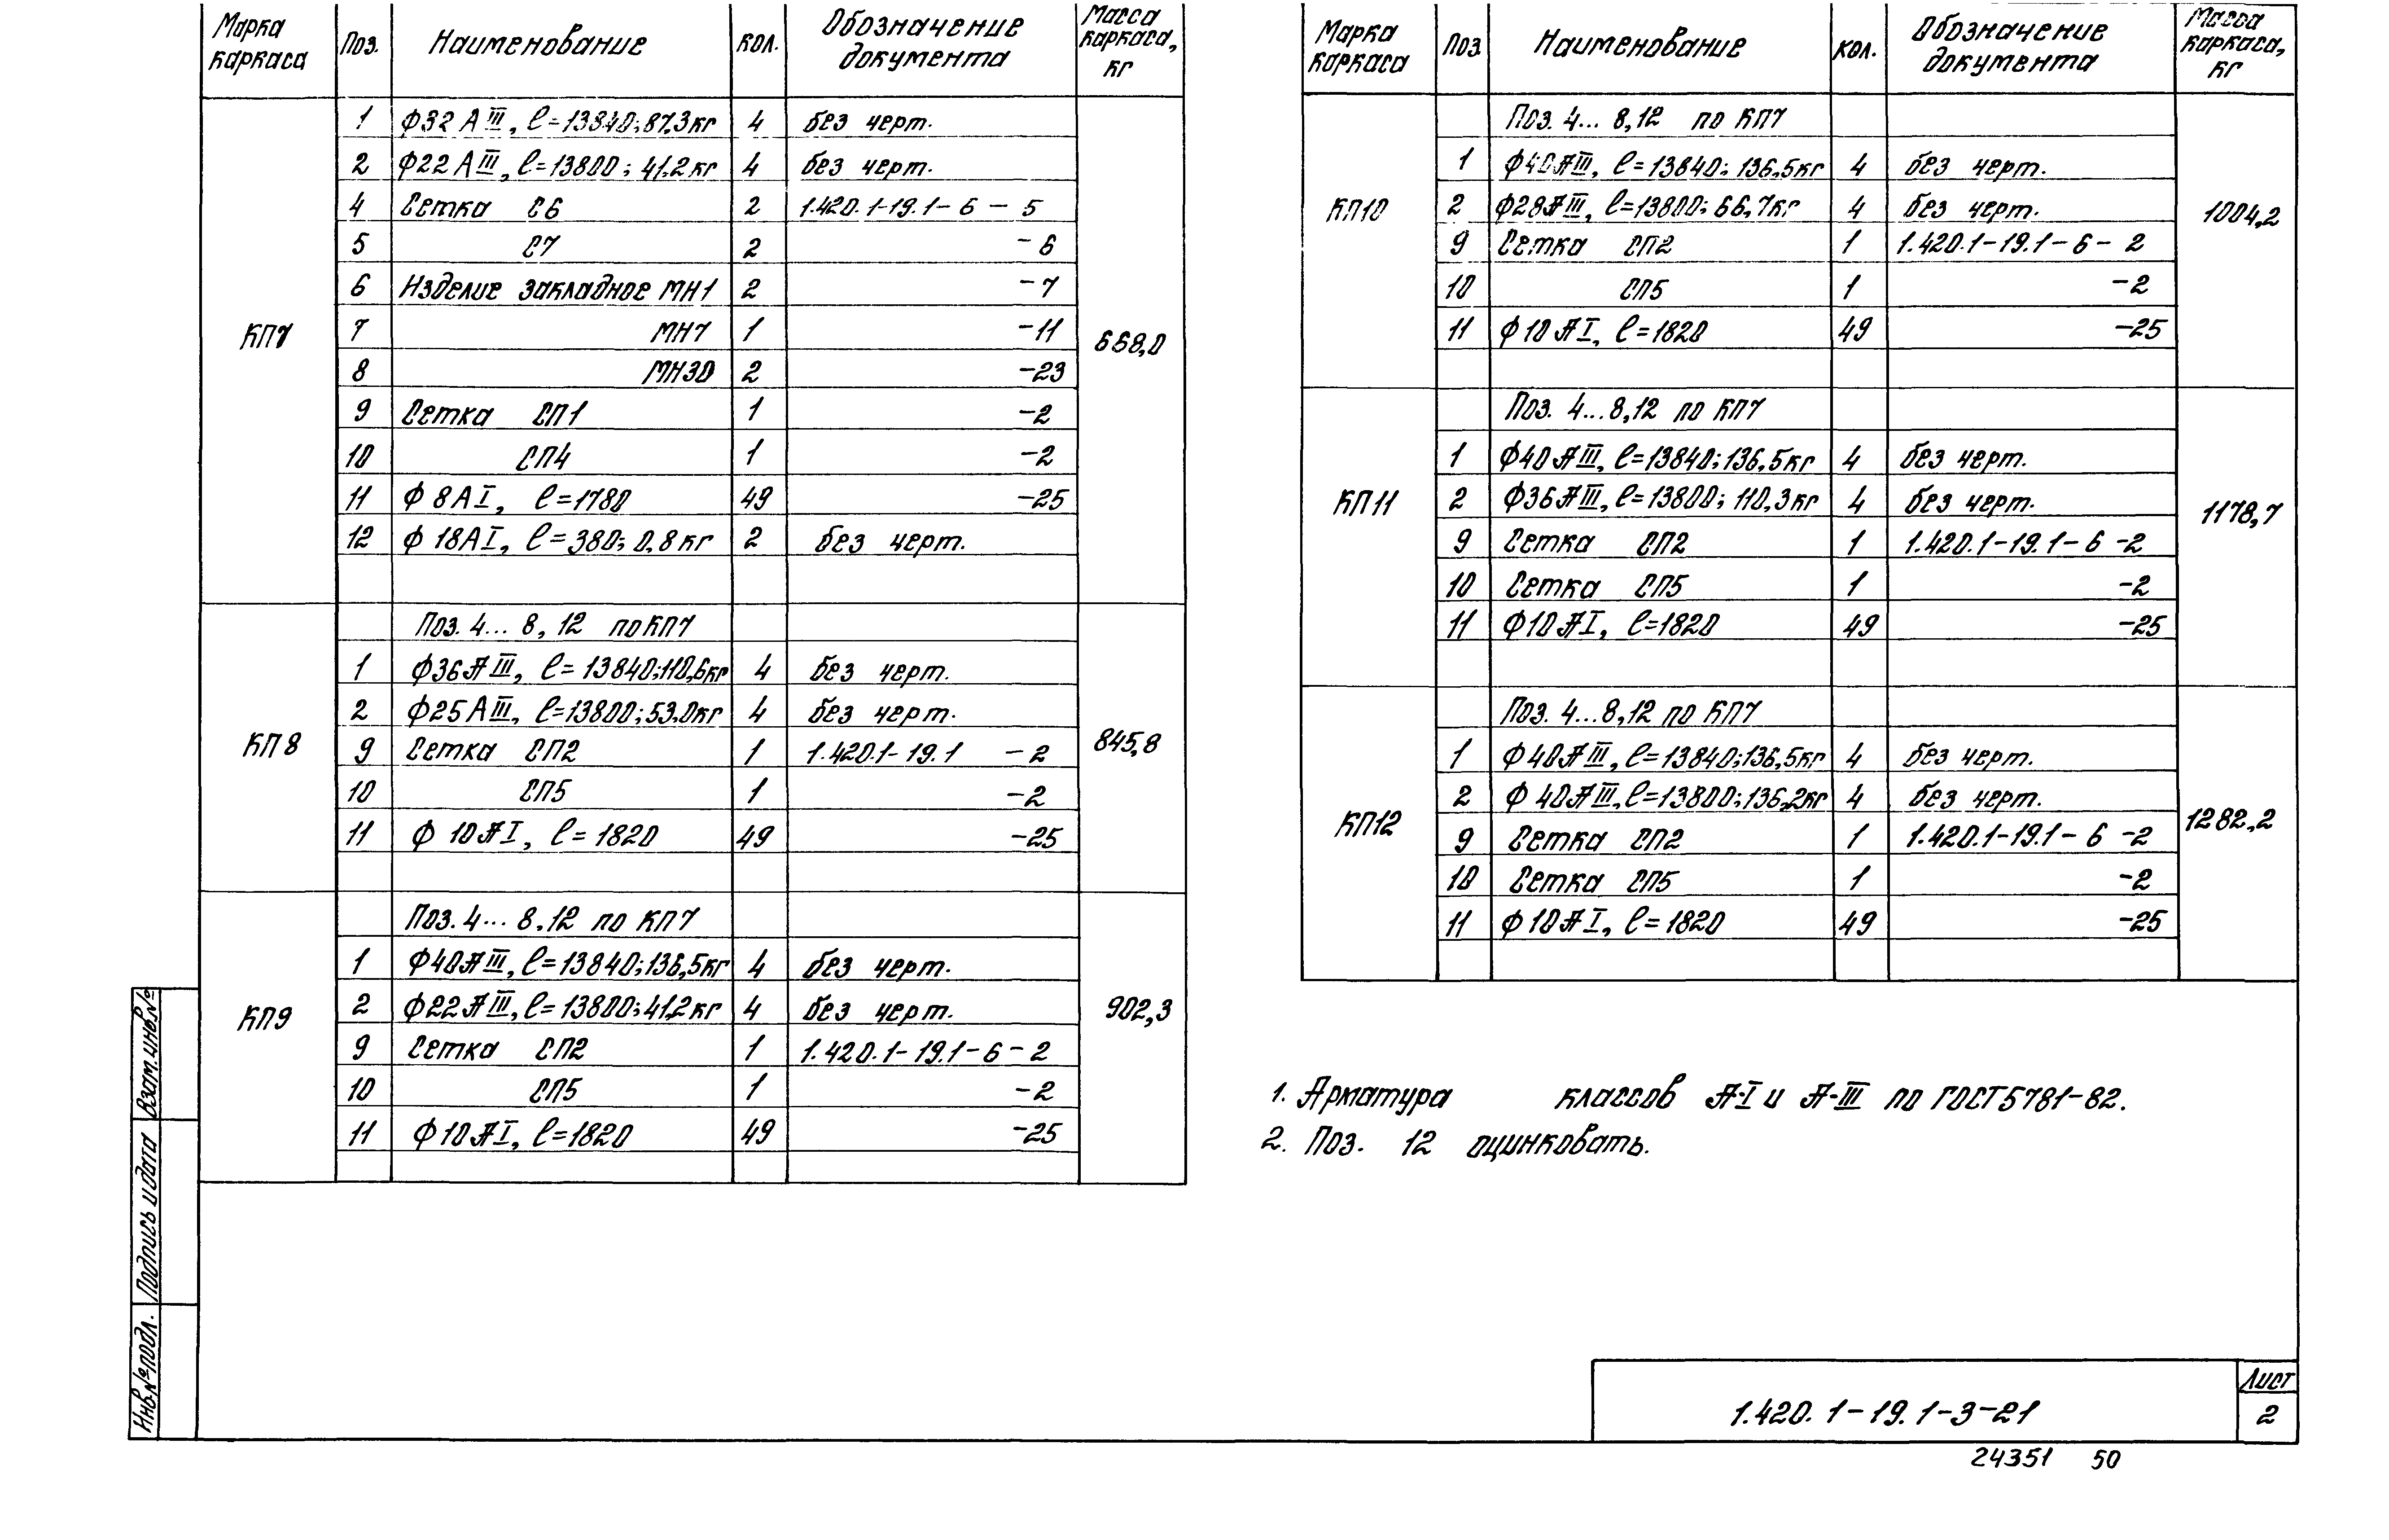 Марка каркаса | Поз. | Наименование | Кол. | Обозначение документа | Масса каркаса, кг
КП7 | 668,0
1 | Ф32 АIII, ℓ=13840; 87,3кг | 4 | без черт.
2 | Ф22 АIII, ℓ=13800; 41,2кг | 4 | без черт.
4 | Сетка С6 | 2 | 1.420.1-19.1-6-5
5 | С7 | 2 | -6
6 | Изделие закладное МН1 | 2 | -7
7 | МН7 | 1 | -11
8 | МН30 | 2 | -23
9 | Сетка СП1 | 1 | -2
10 | СП4 | 1 | -2
11 | Ф8АI, ℓ=1780 | 49 | -25
12 | Ф18АI, ℓ=380; 0,8кг | 2 | без черт.
КП8 | 845,8
Поз. 4... 8, 12 по КП7
1 | Ф36АIII, ℓ=13840; 110,6кг | 4 | без черт.
2 | Ф25АIII, ℓ=13800; 53,0кг | 4 | без черт.
9 | Сетка СП2 | 1 | 1.420.1-19.1 -2
10 | СП5 | 1 | -2
11 | Ф10АI, ℓ=1820 | 49 | -25
КП9 | 902,3
Поз. 4... 8, 12 по КП7
1 | Ф40АIII, ℓ=13840; 136,5кг | 4 | без черт.
2 | Ф22АIII, ℓ=13800; 41,2кг | 4 | без черт.
9 | Сетка СП2 | 1 | 1.420.1-19.1-6-2
10 | СП5 | 1 | -2
11 | Ф10АI, ℓ=1820 | 49 | -25
Марка каркаса | Поз. | Наименование | Кол. | Обозначение документа | Масса каркаса, кг
КП10 | 1004,2
Поз. 4... 8, 12 по КП7
1 | Ф40АIII, ℓ=13840; 136,5кг | 4 | без черт.
2 | Ф28АIII, ℓ=13800; 66,7кг | 4 | без черт.
9 | Сетка СП2 | 1 | 1.420.1-19.1-6-2
10 | СП5 | 1 | -2
11 | Ф10АI, ℓ=1820 | 49 | -25
КП11 | 1178,7
Поз. 4... 8, 12 по КП7
1 | Ф40АIII, ℓ=13840; 136,5кг | 4 | без черт.
2 | Ф36АIII, ℓ=13800; 110,3кг | 4 | без черт.
9 | Сетка СП2 | 1 | 1.420.1-19.1-6-2
10 | Сетка СП5 | 1 | -2
11 | Ф10АI, ℓ=1820 | 49 | -25
КП12 | 1282,2
Поз. 4... 8, 12 по КП7
1 | Ф40АIII, ℓ=13840; 136,5кг | 4 | без черт.
2 | Ф40АIII, ℓ=13800; 136,2кг | 4 | без черт.
9 | Сетка СП2 | 1 | 1.420.1-19.1-6-2
10 | Сетка СП5 | 1 | -2
11 | Ф10АI, ℓ=1820 | 49 | -25
1. Арматура классов А-I и А-III по ГОСТ5781-82.
2. Поз. 12 оцинковать.
Взам.инв.№
Подпись и дата
Инв.№ подл.
1.420.1-19.1-3-21
Лист
2
24351 50